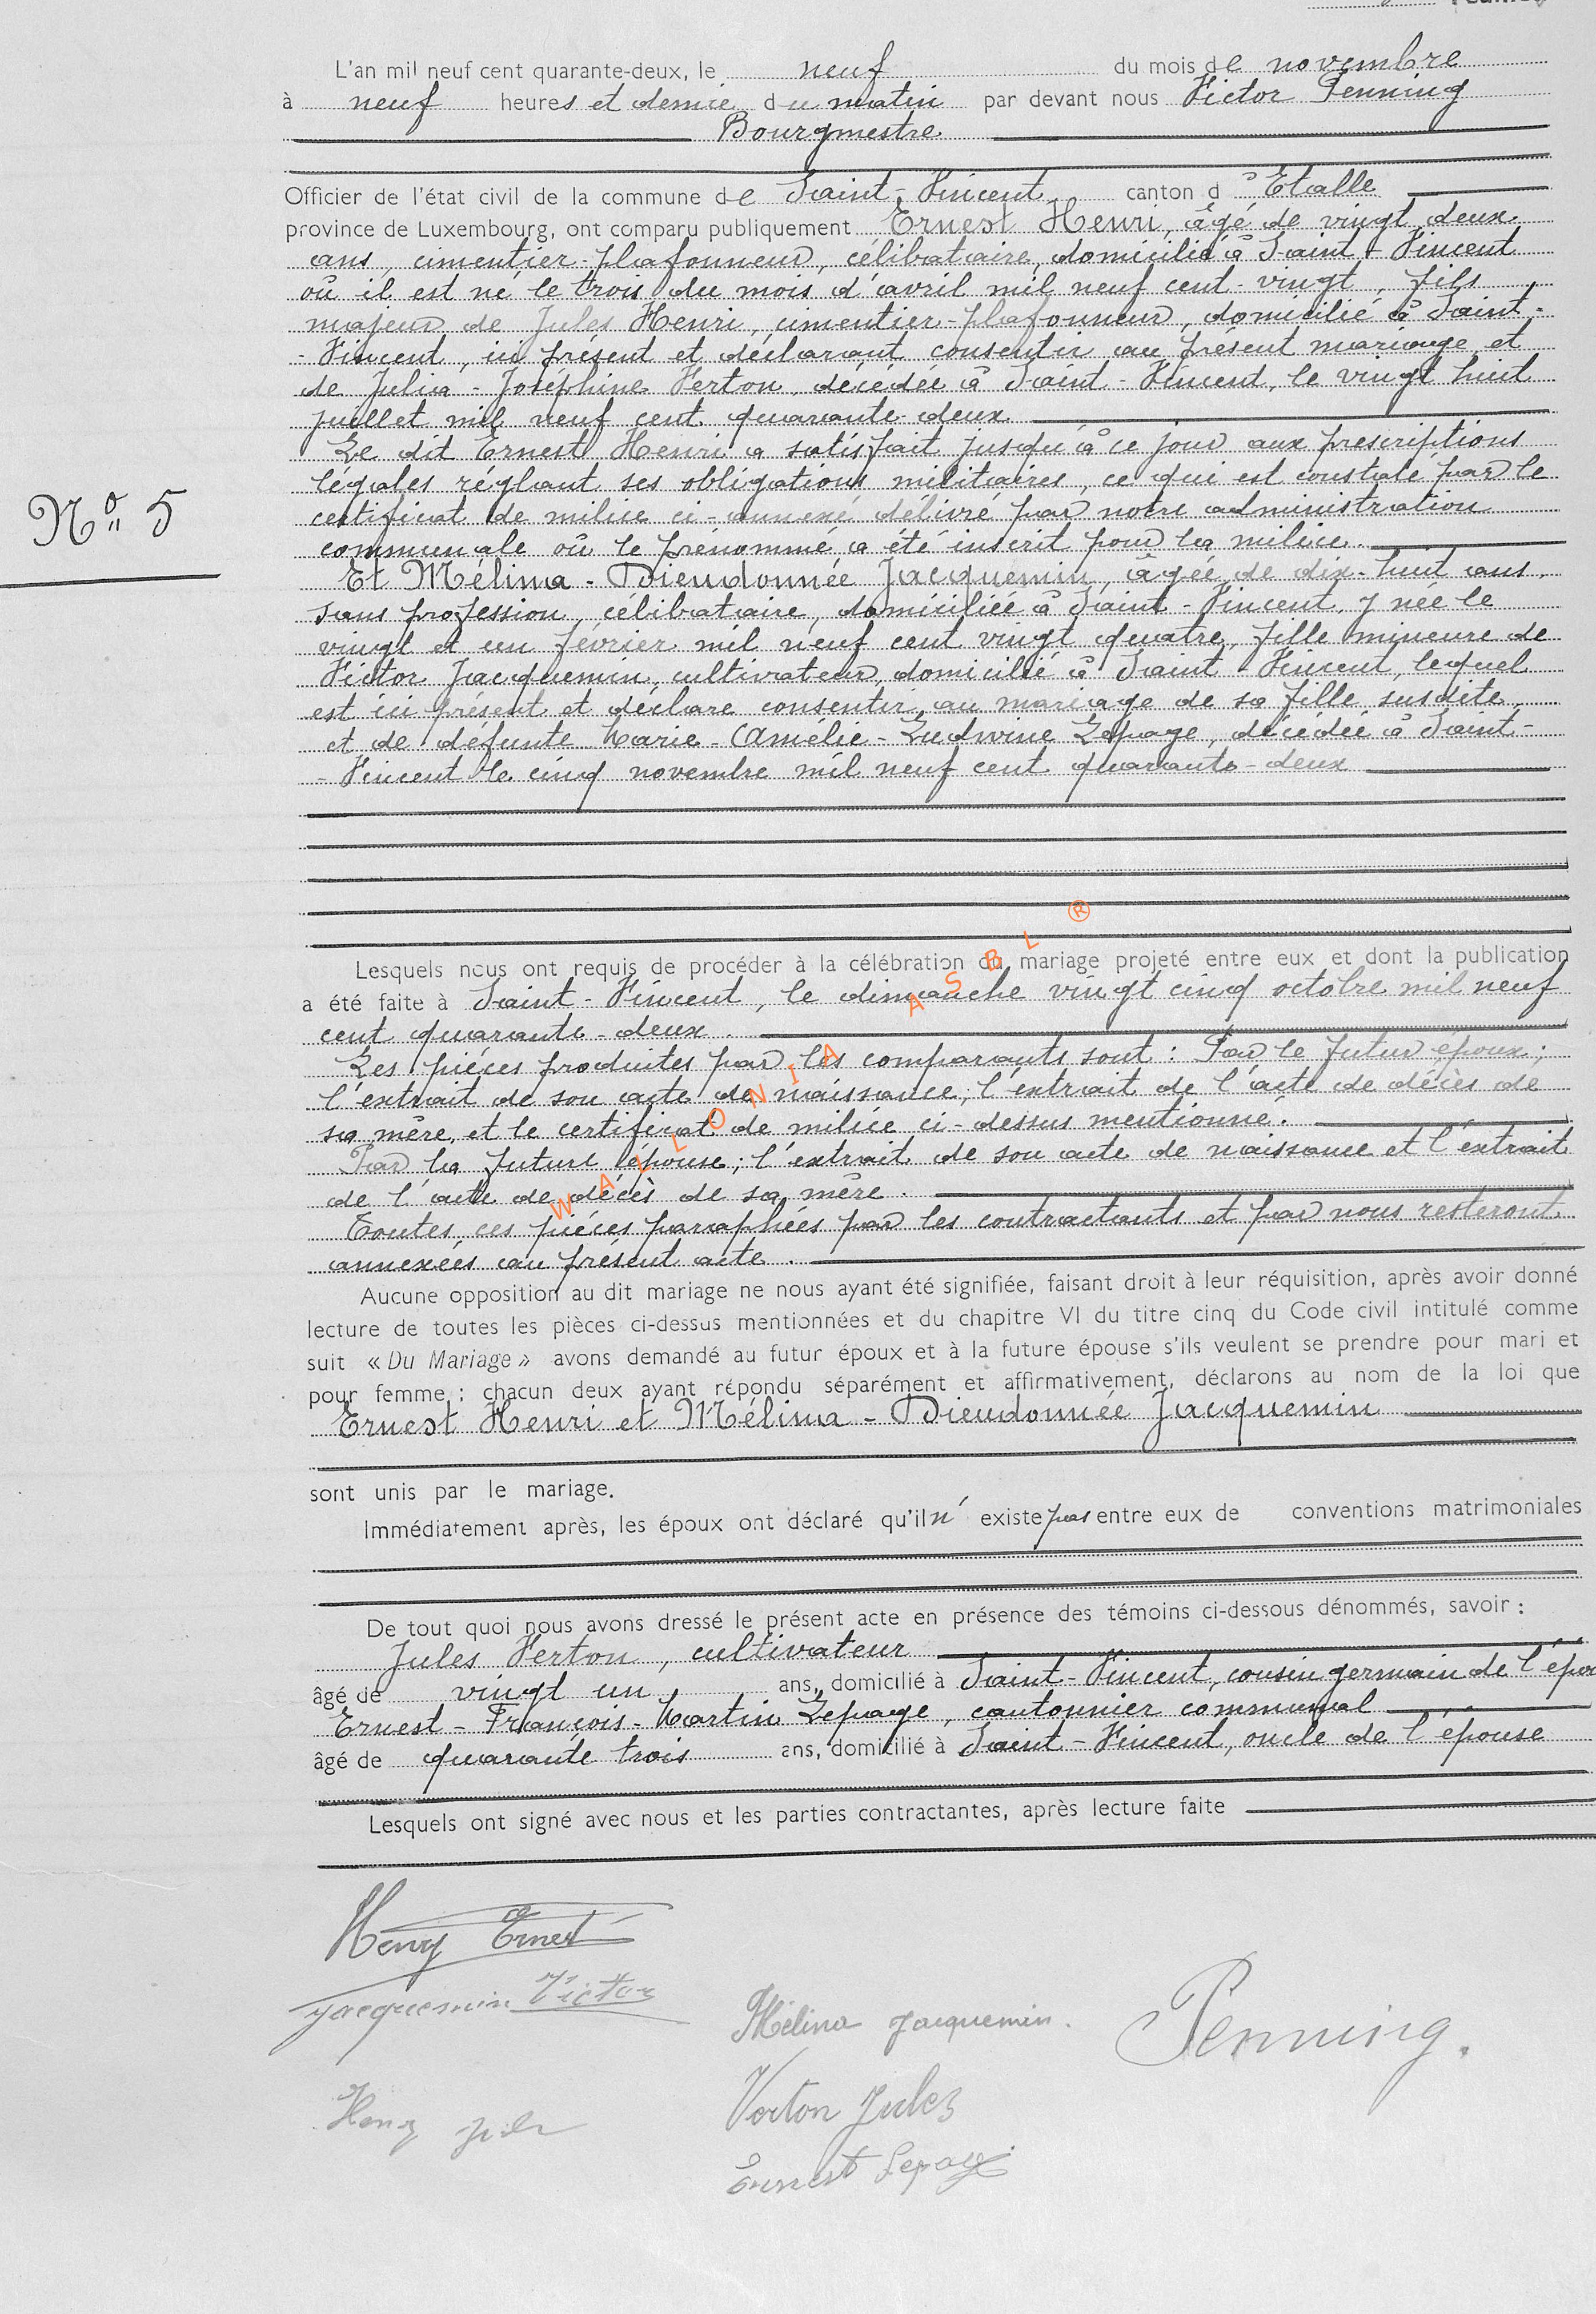 L'an mil neuf cent quarante-deux, le neuf du mois de novembre
à neuf heures et demie du matin par devant nous Victor Penning
Bourgmestre
Officier de l'état civil de la commune de Saint-Vincent canton d'Etalle
province de Luxembourg, ont comparu publiquement Ernest Henri, âgé de vingt deux
ans, cimentier-plafonneur, célibataire, domicilié à Saint-Vincent
où il est né le trois du mois d'avril mil neuf cent-vingt, fils
majeur de Jules Henri, cimentier-plafonneur, domicilié à Saint-
-Vincent, ici présent et déclarant consentir au présent mariage et
de Julia-Joséphine Verton, décédée à Saint-Vincent, le vingt huit
juillet mil neuf cent quarante-deux
Le dit Ernest Henri a satisfait jusqu'à ce jour aux prescriptions
légales réglant ses obligations militaires, ce qui est constaté par le
certificat de milice ci-annexé délivré par notre administration
communale où le prénommé a été inscrit pour la milice.
N° 5
Et Mélina-Dieudonnée Jacquemin, âgée de dix-huit ans,
sans profession, célibataire, domiciliée à Saint-Vincent, y née le
vingt et un février mil neuf cent vingt quatre, fille mineure de
Victor Jacquemin, cultivateur, domicilié à Saint-Vincent, lequel
est ici présent et déclare consentir au mariage de sa fille susdite,
et de défunte Marie-Amélie-Ludwine Lepage, décédée à Saint-
-Vincent le cinq novembre mil neuf cent quarante-deux
Lesquels nous ont requis de procéder à la célébration du mariage projeté entre eux et dont la publication
a été faite à Saint-Vincent, le dimanche vingt cinq octobre mil neuf
cent quarante-deux.
Les pièces produites par les comparants sont : Par le futur époux;
l'extrait de son acte de naissance; l'extrait de l'acte de décès de
sa mère, et le certificat de milice ci-dessus mentionné.
Par la future épouse; l'extrait de son acte de naissance et l'extrait
de l'acte de décès de sa mère.
Toutes ces pièces paraphées par les contractants et par nous resteront
annexées au présent acte.
WALLONIA ASBL ®
Aucune opposition au dit mariage ne nous ayant été signifiée, faisant droit à leur réquisition, après avoir donné
lecture de toutes les pièces ci-dessus mentionnées et du chapitre VI du titre cinq du Code civil intitulé comme
suit « Du Mariage » avons demandé au futur époux et à la future épouse s'ils veulent se prendre pour mari et
pour femme ; chacun deux ayant répondu séparément et affirmativement, déclarons au nom de la loi que
Ernest Henri et Mélina-Dieudonnée Jacquemin
sont unis par le mariage.
Immédiatement après, les époux ont déclaré qu'il n' existe pas entre eux de conventions matrimoniales
De tout quoi nous avons dressé le présent acte en présence des témoins ci-dessous dénommés, savoir :
Jules Verton, cultivateur
âgé de vingt un ans, domicilié à Saint-Vincent, cousin germain de l'épou
Ernest-François-Martin Lepage, cantonnier communal
âgé de quarante trois ans, domicilié à Saint-Vincent, oncle de l'épouse
Lesquels ont signé avec nous et les parties contractantes, après lecture faite
Henry Ernest
Jacquemin Victor
Mélina Jacquemin.
Penning.
Henry Jules
Verton Jules
Ernest Lepage